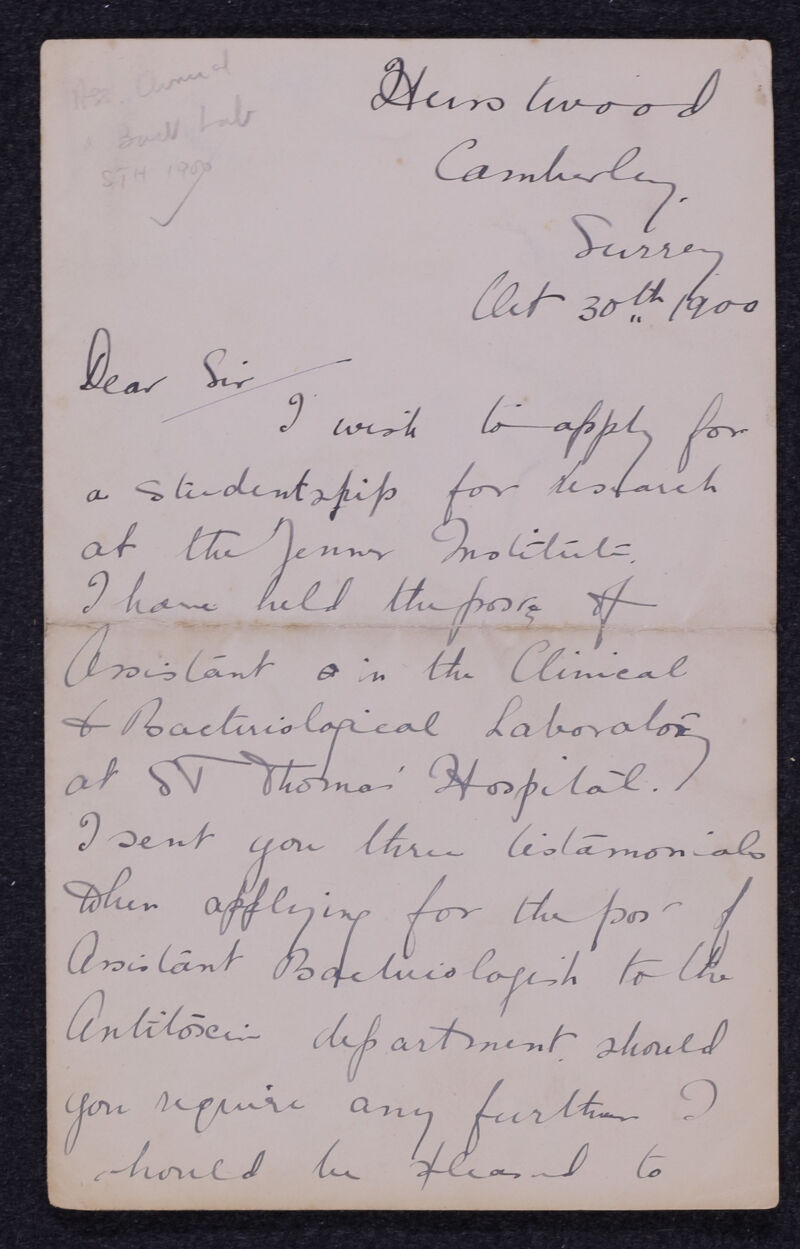 Ass. Clinical
& Bact Lab
STH 1900
Hurstwood
Camberley.
Surrey
Oct 30th 1900
Dear Sir
I wish to apply for
a studentship for research
at the Jenner Institute.
I have held the post of
Assistant in the Clinical
& Bacteriological Laboratory
at ST Thomas' Hospital.
I sent you three testamonials
when applying for the post of
Assistant Bacteriologist to the
Antitoxin department. should
you require any further I
should be pleased to